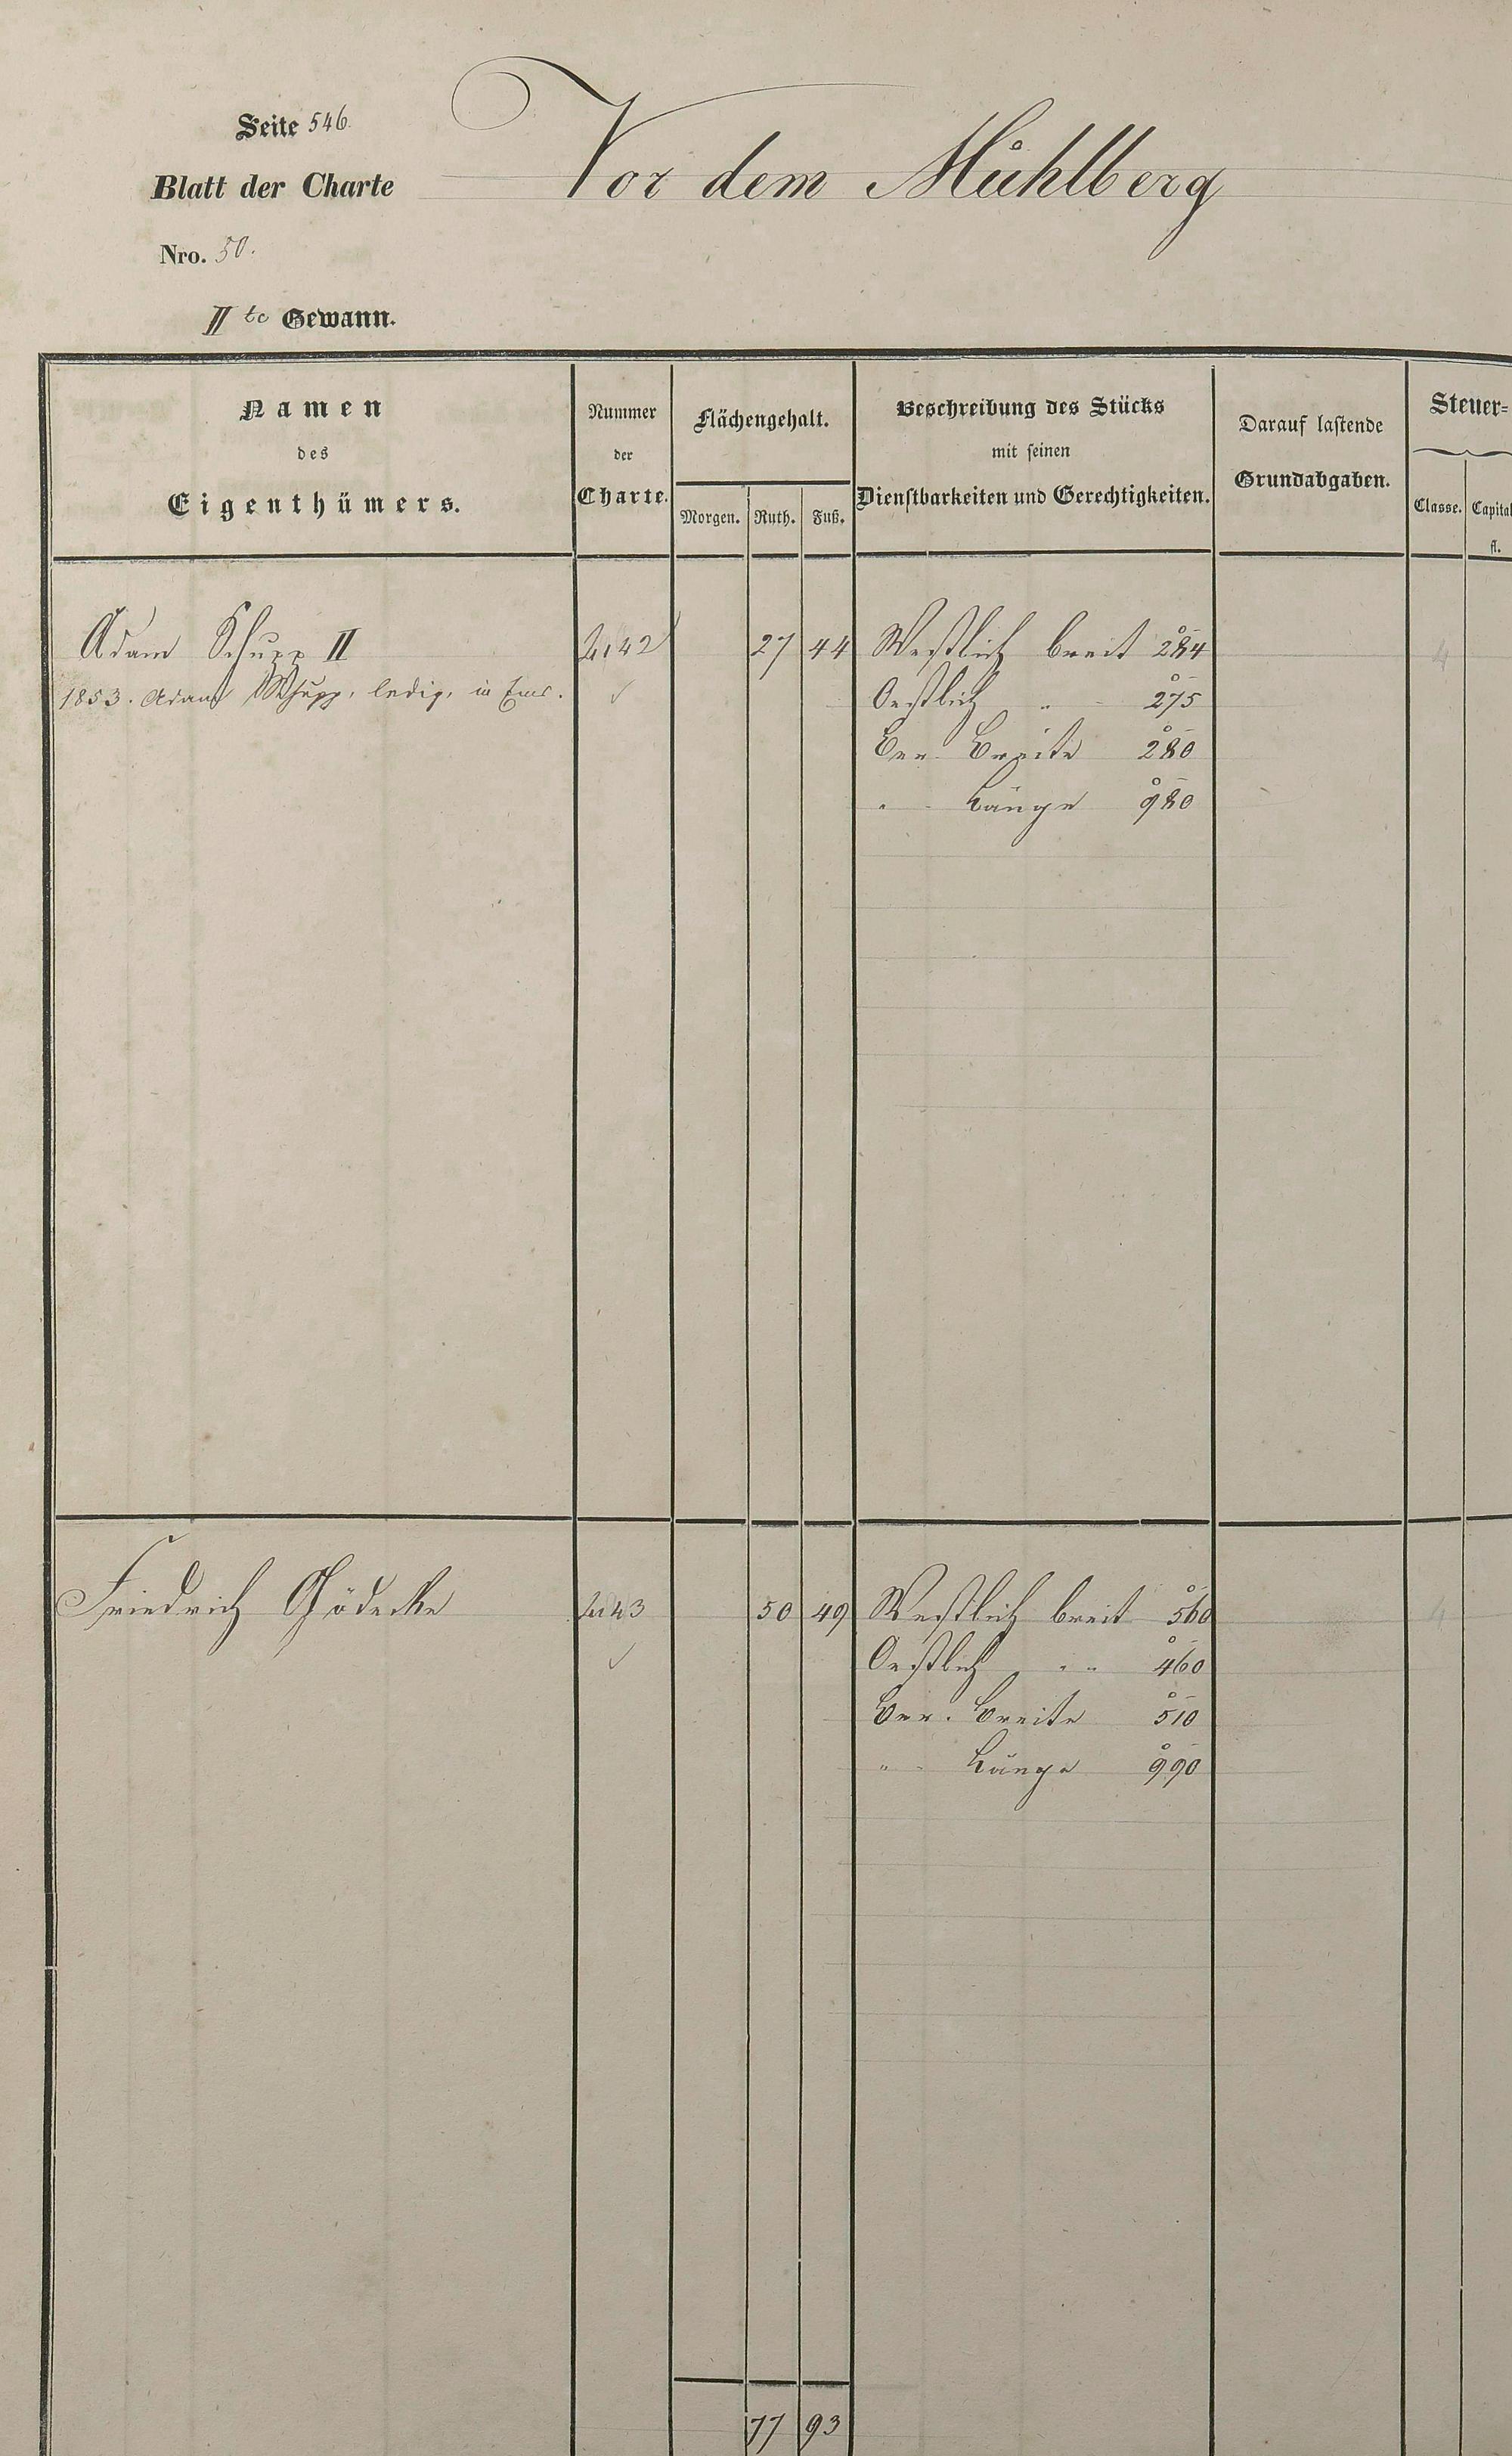 Seite 546.
Blatt der Charte
Nro. 50.
IIte Gewann.
Vor dem Mühlberg
Namen
des
Eigenthümers.
Nummer
der
Charte.
Flächengehalt.
Morgen. Ruth. Fuß.
Beschreibung des Stücks
mit seinen
Dienstbarkeiten und Gerechtigkeiten.
Darauf lastende
Grundabgaben.
Steuer-
Classe. Capital
fl.
Adam Schupp II 27 44 Westlich breit 284 4
1853. Adam Schupp, ledig, in Ems. Oestlich " - 275
Ber. Breite 280
" - Länge 980
Friedrich Gödecke 50 49 Westlich breit 560 4
Oestlich " - 460
Ber. Breite 510
" - Länge 990
77 93